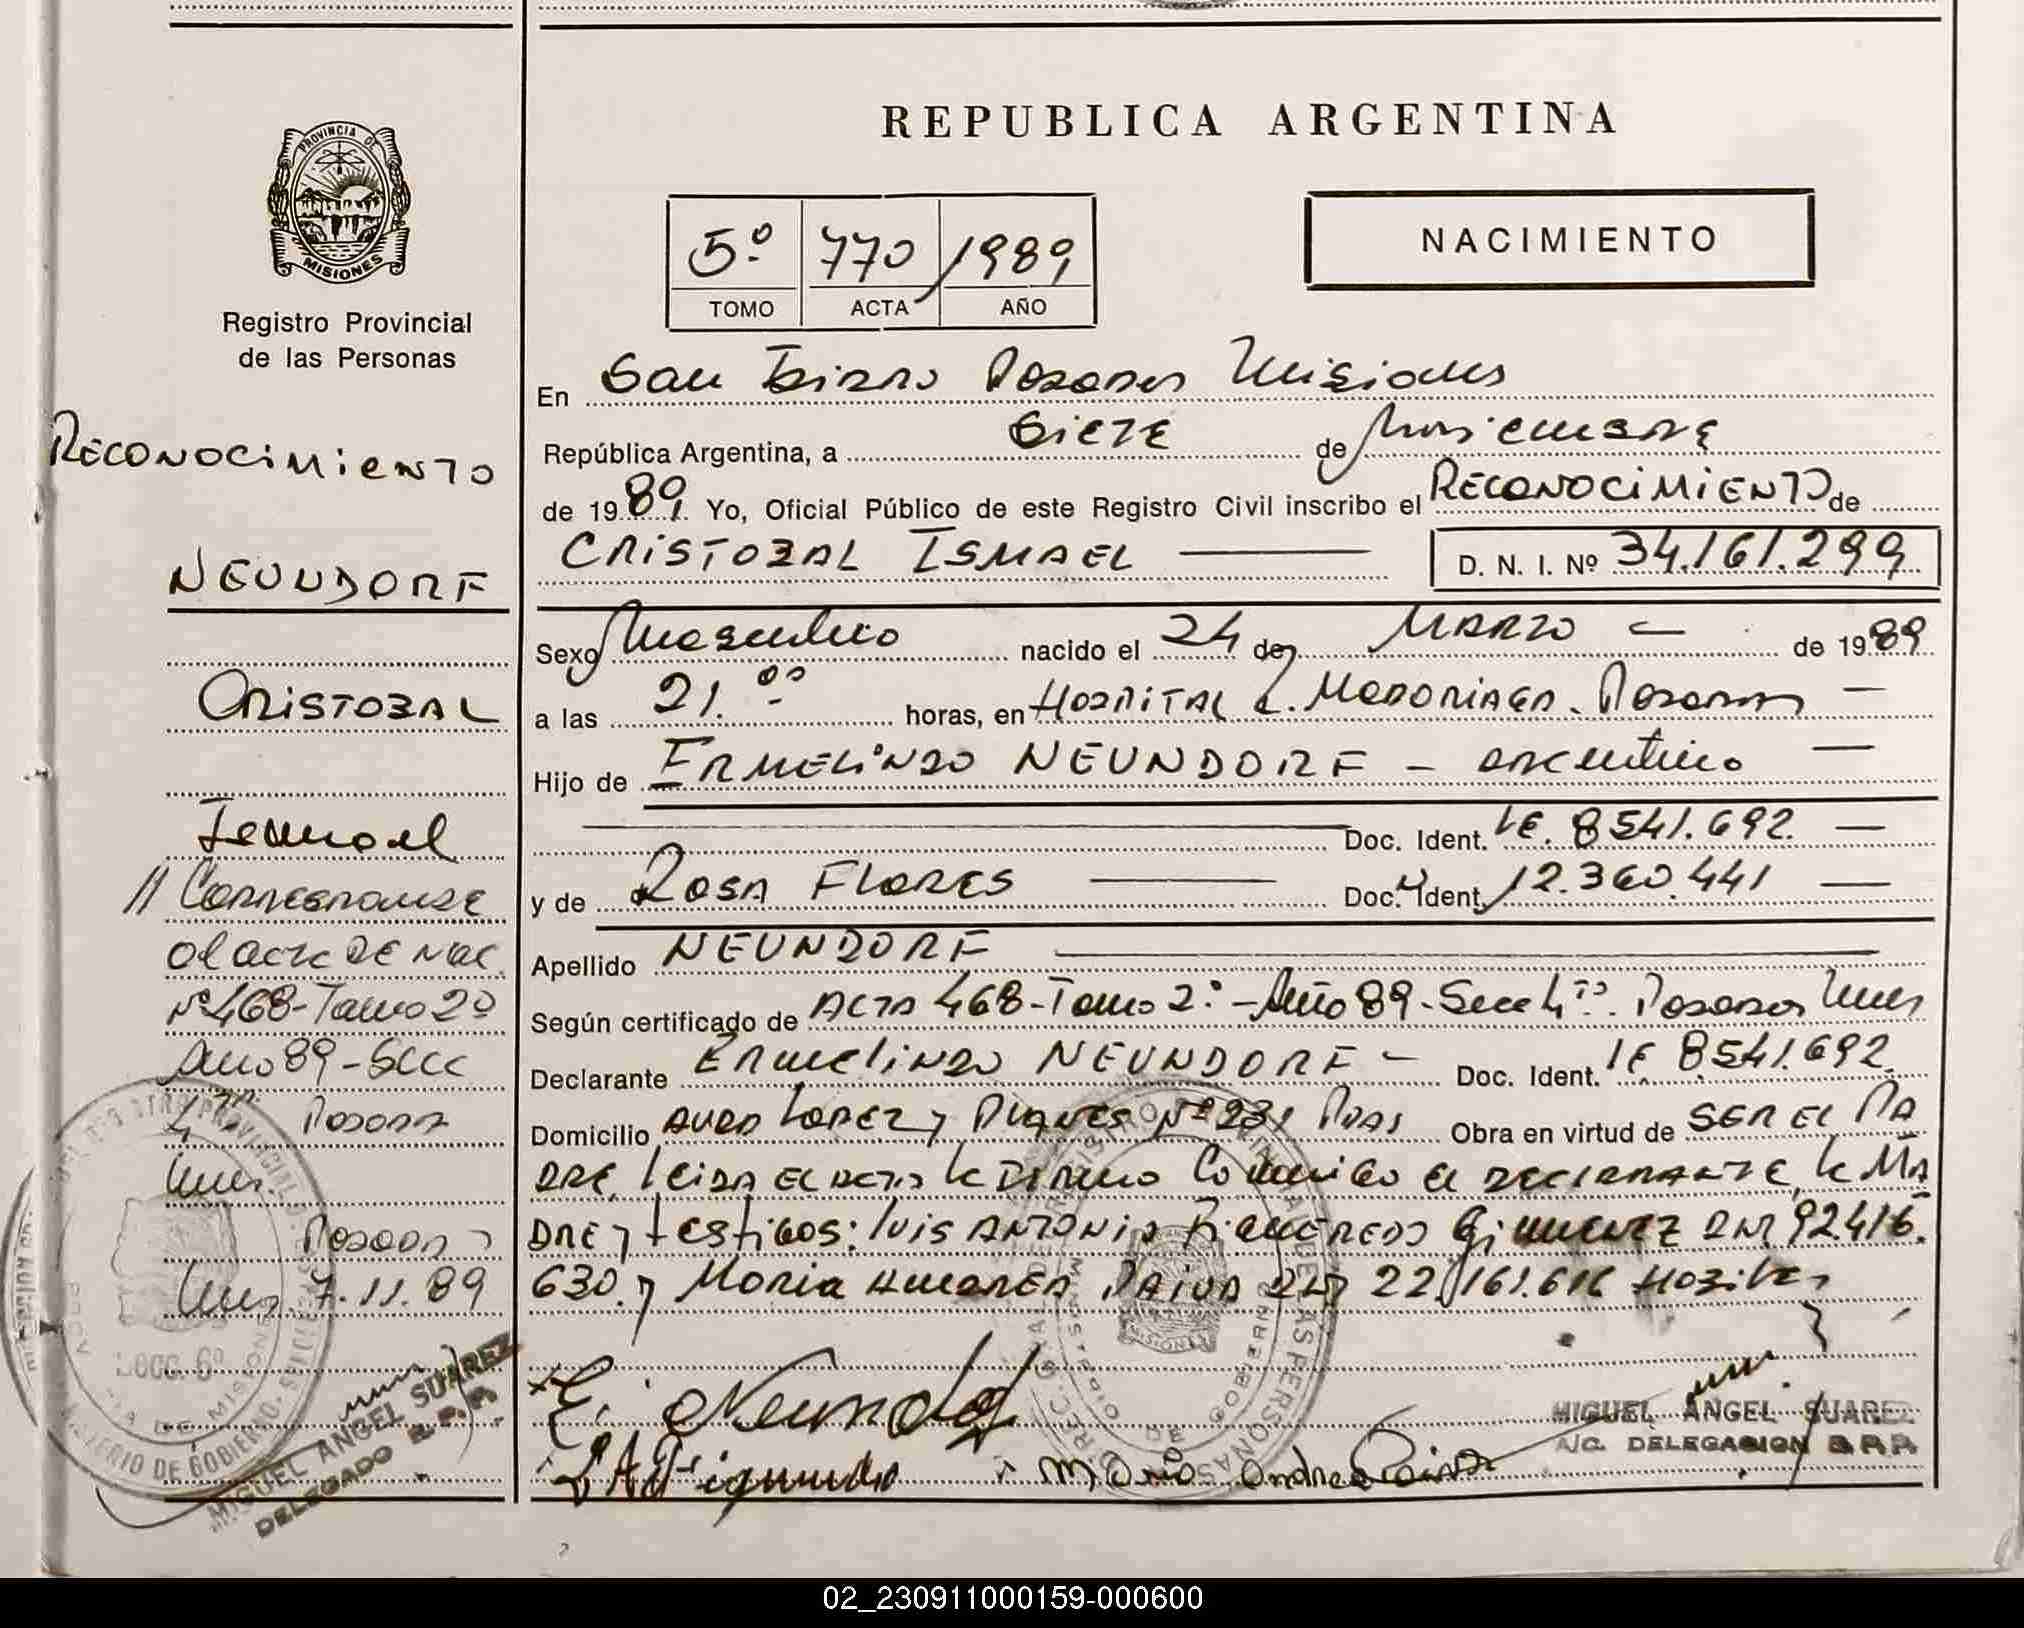 REPUBLICA ARGENTINA
PROVINCIA DE
MISIONES
Registro Provincial
de las Personas
5º 770 1989
TOMO ACTA AÑO
NACIMIENTO
RECONOCIMIENTO
NEUNDORF
CRISTOBAL
Ismael
// Corresponde
al acta DE NAC.
Nº 468-Tomo 2º
Año 89-Secc
4ta. Posadas
Mnes.
Posadas
Mnes. 7.11.89
En San Isidro Posadas Misiones
República Argentina, a siete de Noviembre
de 1989. Yo, Oficial Público de este Registro Civil inscribo el RECONOCIMIENTO de
CRISTOBAL ISMAEL D. N. I. Nº 34.161.299
Sexo Masculino nacido el 24 de MARZO de 1989
a las 21.00 horas, en HOSPITAL R. MADARIAGA. Posadas
Hijo de ERMELINDO NEUNDORF - argentino
Doc. Ident. LE. 8541.692.
y de ROSA FLORES Doc. Ident. 12.360.441
Apellido NEUNDORF
Según certificado de ACTA 468-Tomo 2º-Año 89-Secc 4ta. Posadas Mnes
Declarante Ermelindo NEUNDORF - Doc. Ident. LE 8541.692
Domicilio AVDA LOPEZ y PLANES Nº 231 Pdas Obra en virtud de SER EL PA
DRE. Leida EL ACTA la firman Conmigo el DECLARANTE, la MA
DRE y testigos: LUIS ANTONIO FIGUEREDO Gimenez DNI 92.416.
630. y Maria ANDREA PAIVA DNI 22.161.616 Habiles
E. Neundorf
L A Figueredo Maria Andrea Paiva
MIGUEL ANGEL SUAREZ
A/C. DELEGACION R.P.P.
MIGUEL ANGEL SUAREZ
DELEGADO R.P.P.
SECC. 6ª
MINISTERIO DE GOBIERNO
02_230911000159-000600